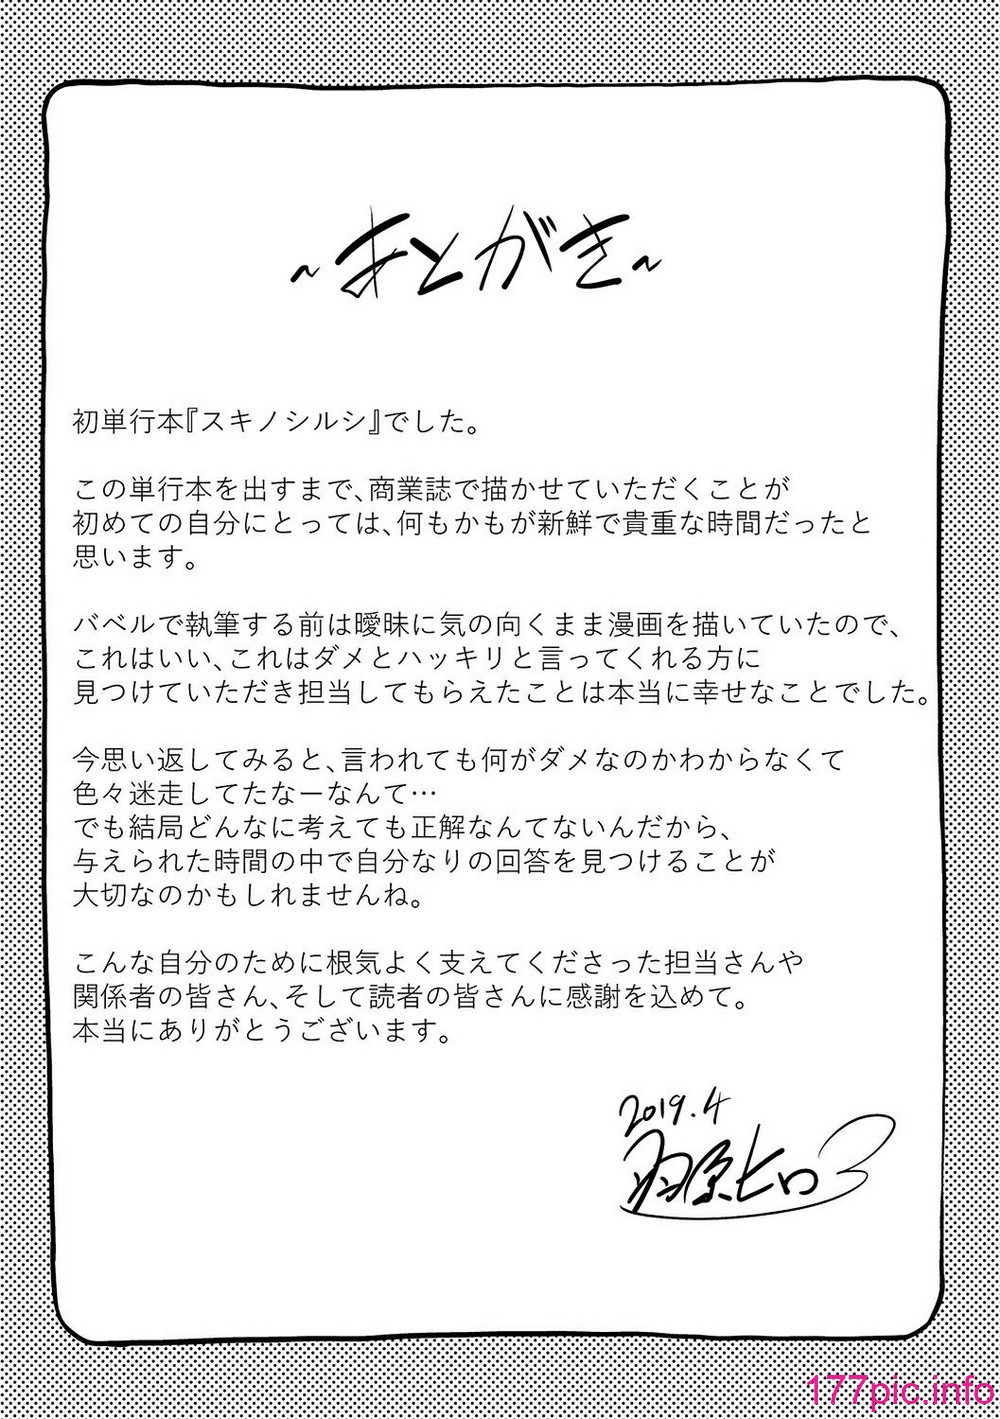 ~あとがき~
初単行本『スキノシルシ』でした。
この単行本を出すまで、商業誌で描かせていただくことが
初めての自分にとっては、何もかもが新鮮で貴重な時間だったと
思います。
バベルで執筆する前は曖昧に気の向くまま漫画を描いていたので、
これはいい、これはダメとハッキリと言ってくれる方に
見つけていただき担当してもらえたことは本当に幸せなことでした。
今思い返してみると、言われても何がダメなのかわからなくて
色々迷走してたなーなんて…
でも結局どんなに考えても正解なんてないんだから、
与えられた時間の中で自分なりの回答を見つけることが
大切なのかもしれませんね。
こんな自分のために根気よく支えてくださった担当さんや
関係者の皆さん、そして読者の皆さんに感謝を込めて。
本当にありがとうございます。
2019.4
羽原ヒロ
177pic.info